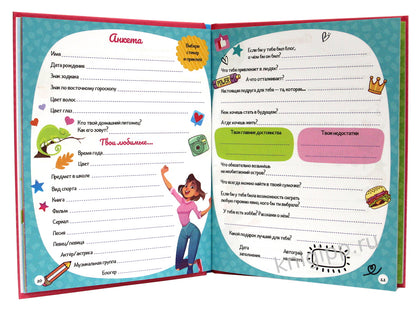 Анкета
Выбери
стикер
и приклей
Имя
Дата рождения
Знак зодиака
Знак по восточному гороскопу
Цвет волос
Цвет глаз
Кто твой домашний питомец?
Как его зовут?
Твои любимые...
Время года
Цвет
Предмет в школе
Вид спорта
Книга
Фильм
Сериал
Песня
Певец/певица
Актёр/актриса
Музыкальная группа
Блогер
Если бы у тебя был блог,
о чём бы он был?
Что тебя привлекает в людях?
А что отталкивает?
Настоящая подруга для тебя — та, которая...
Кем хочешь стать в будущем?
А где хочешь жить?
Твои главные достоинства
Твои недостатки
Что обязательно возьмёшь
на необитаемый остров?
Что всегда можно найти в твоей сумочке?
Если бы у тебя была возможность сыграть
любую героиню кино, кого бы ты выбрала?
У тебя есть хобби? Расскажи о нём!
Какой подарок лучший для тебя?
Дата
заполнения
Автограф
на память